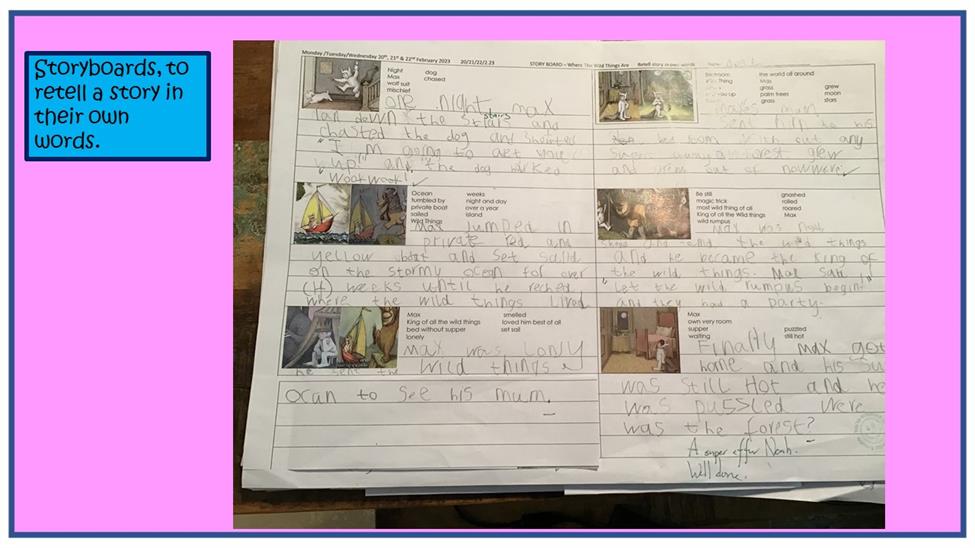 Storyboards, to
retell a story in
their own
words.
Monday /Tuesday/Wednesday 20th, 21st & 22nd February 2023 20/21/22/2.23 STORY BOARD – Where The Wild Things Are Retell story in own words
Night dog
Max chased
wolf suit
mischief
one night max
ran down the stairs and
chasted the dog and shouted
"I'm going to get you
up" and the dog
woof woof!
the world all around
Thing Max
grass grew
palm trees moon
grass stars
mum
sent him to his
bed room with out any
Supper a forest grew
and from out of nowwere
Ocean weeks
tumbled by night and day
private boat over a year
sailed island
Wild Things
Max Jumped in
private red and
yellow boat and set saild
on the stormy ocean for over
weeks until he reched
where the wild things lived
Be still gnashed
magic trick rolled
most wild thing of all roared
King of all the Wild things Max
wild rumpus
Max was
the wild things
and he became the King of
the wild things. Max
"Let the wild rumpus begin!"
and they had a party.
Max smelled
King of all the wild things loved him best of all
bed without supper set sail
lonely
Max was lonly
wild things
he sent the
ocan to see his mum.
Max
own very room
supper puzzled
waiting still hot
Finally Max got
home and his
was still Hot and he
was pussled were
was the forest?
A super effort Noah.
Well done.